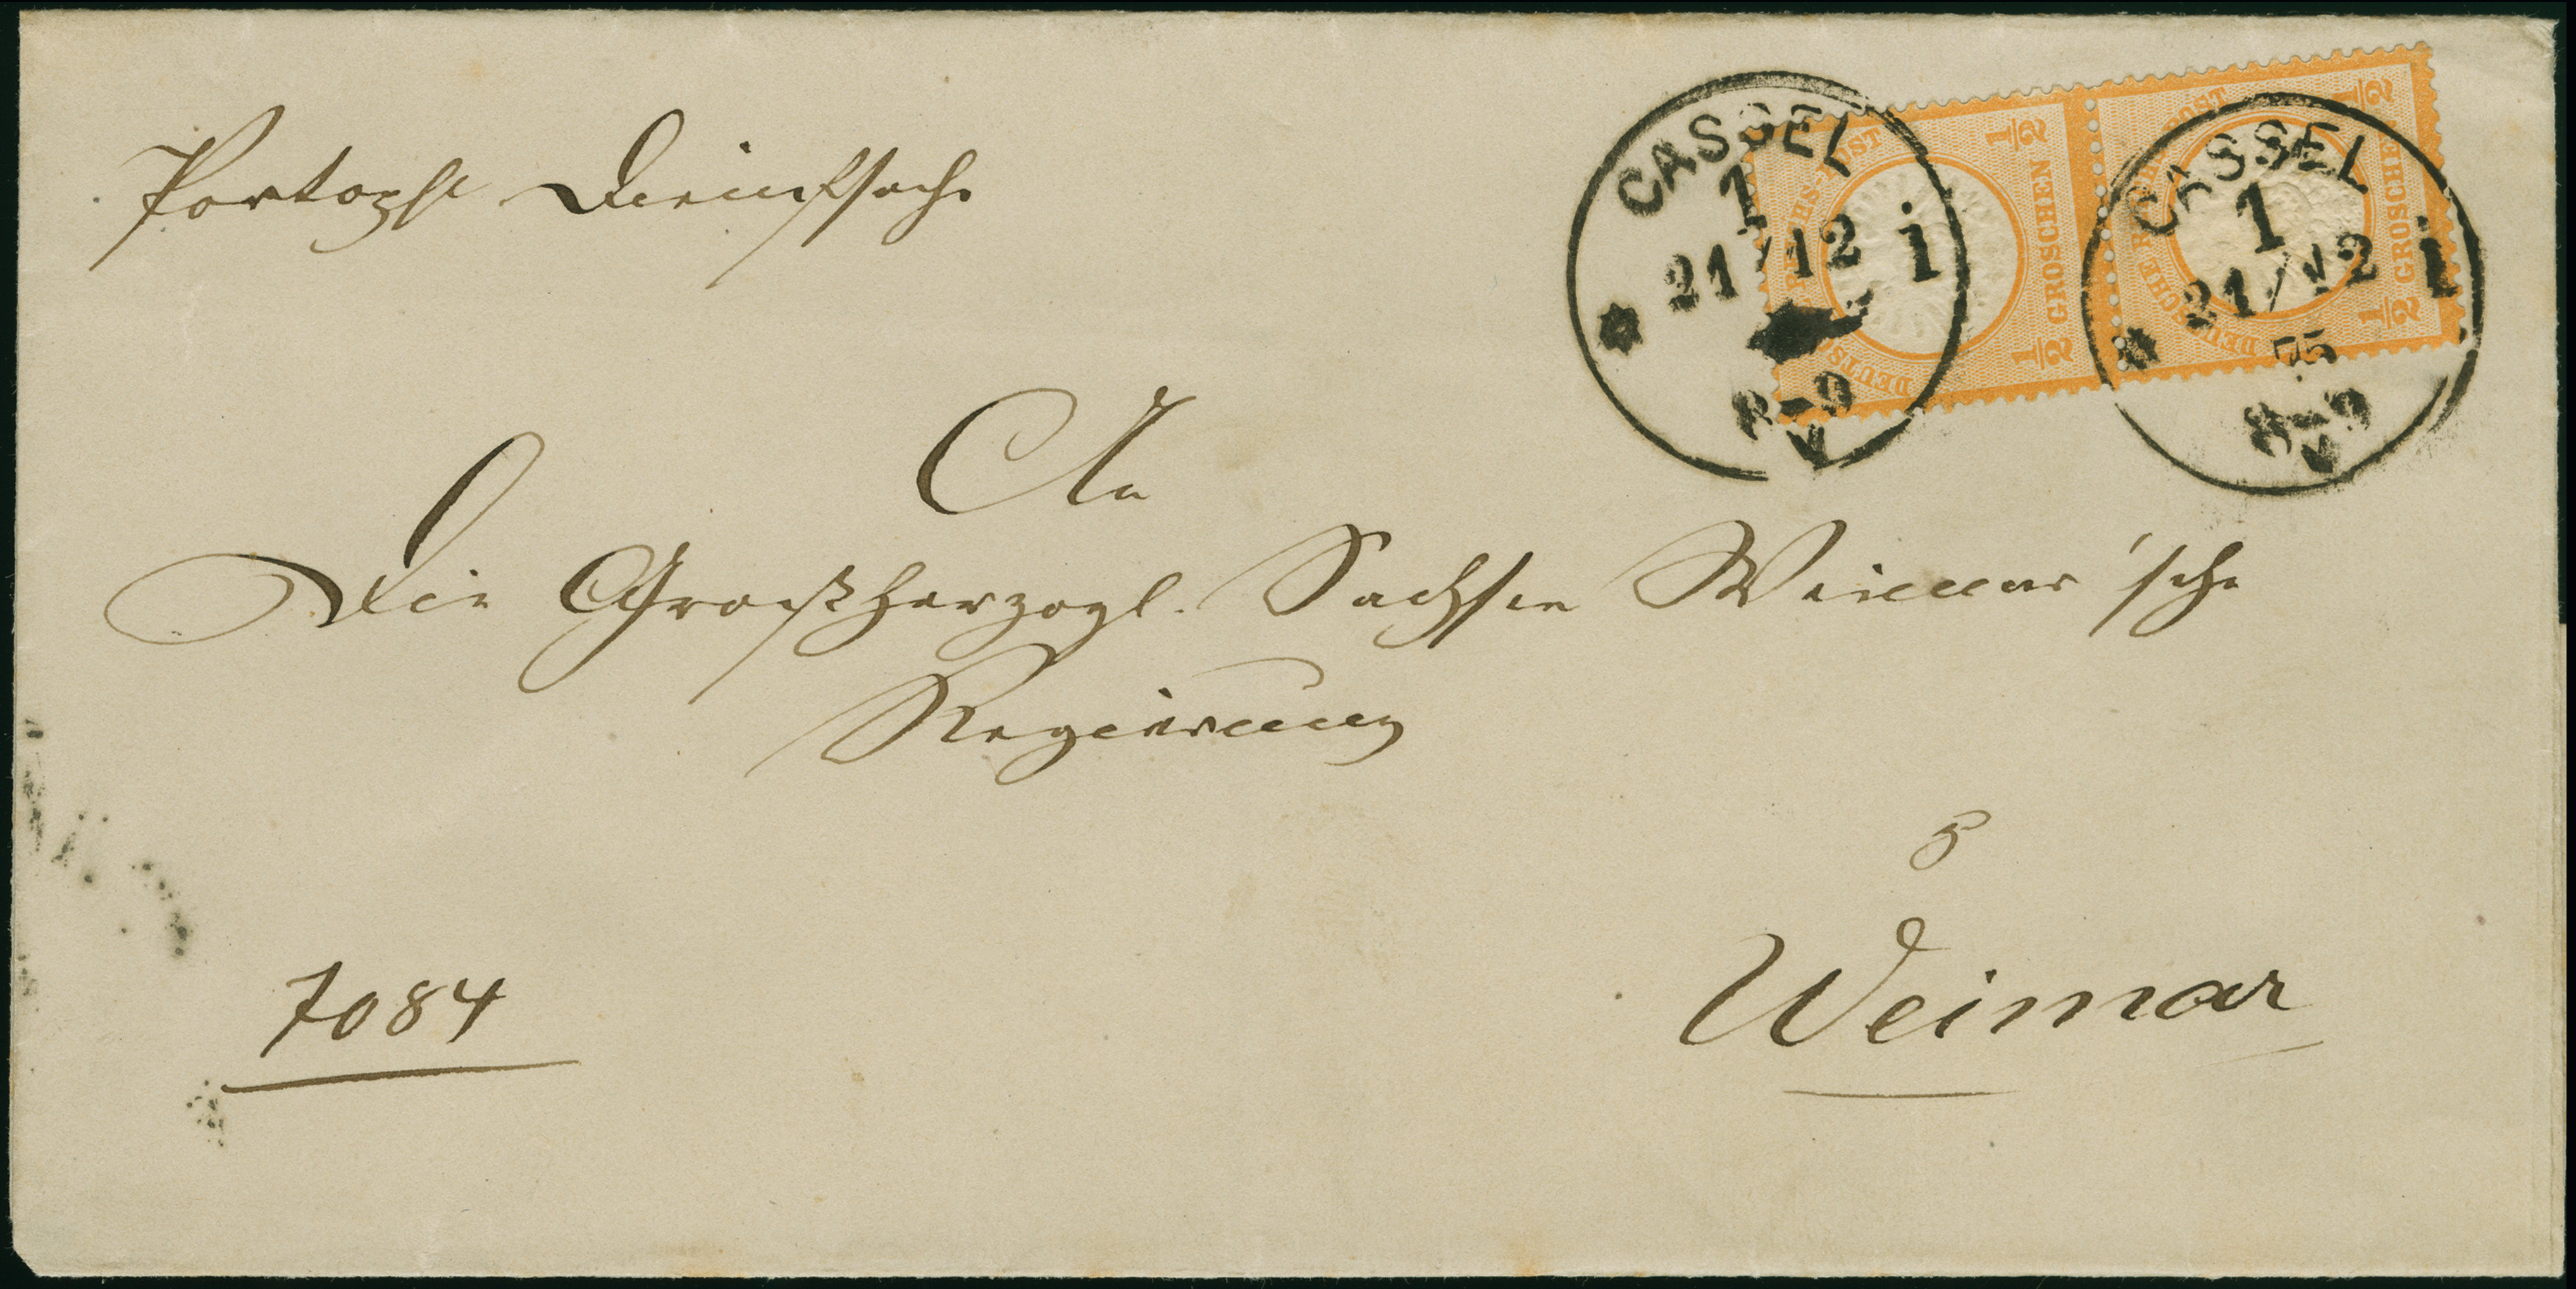 Portopfl. Dienstsache
CASSEL
1
21/12 i
8-9
V
DEUTSCHE REICHS-POST
1/2 GROSCHEN 1/2
CASSEL
1
21/12 i
75
8-9
V
DEUTSCHE REICHS-POST
1/2 GROSCHEN 1/2
An
Die Großherzogl. Sachsen Weimar'sche
Regierung
Weimar
7084